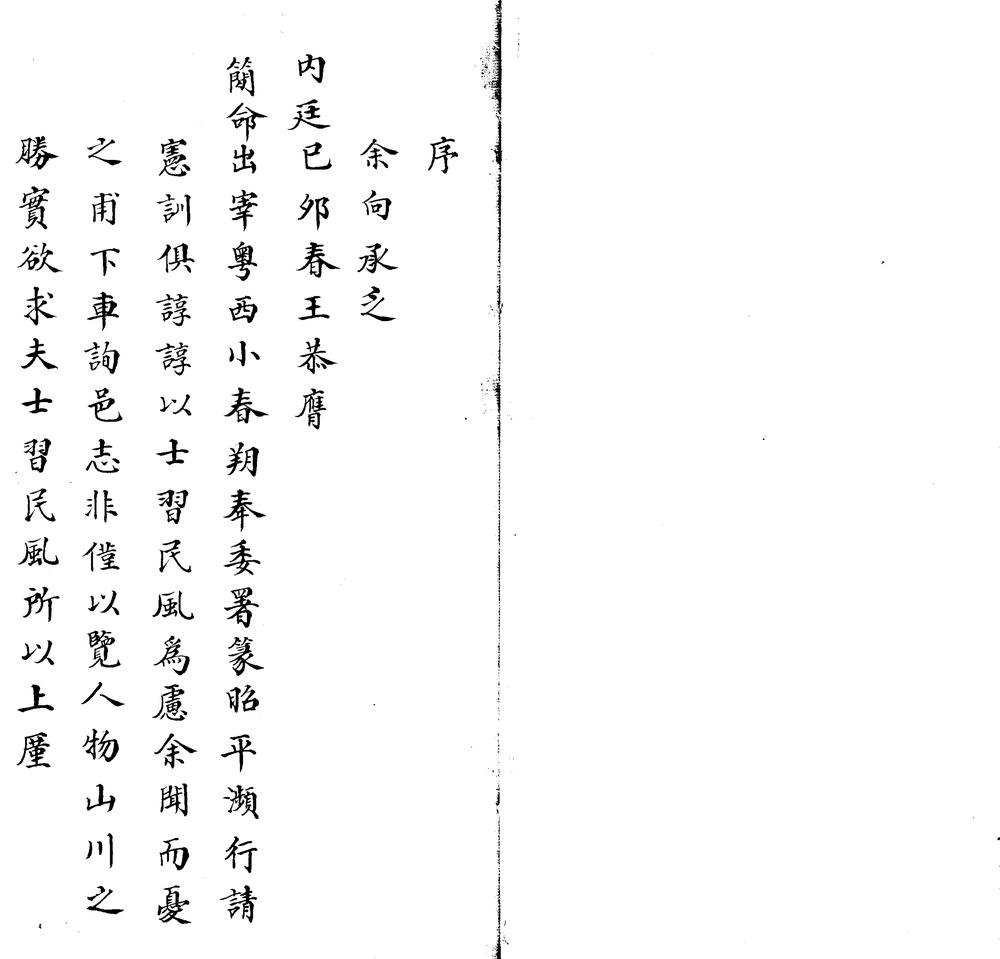 序
余向承乏
內廷巳夘春王恭膺
簡命出宰粵西小春朔奉委署篆昭平瀕行請
憲訓俱諄諄以士習民風爲慮余聞而憂
之甫下車詢邑志非僅以覽人物山川之
勝實欲求夫士習民風所以上厪